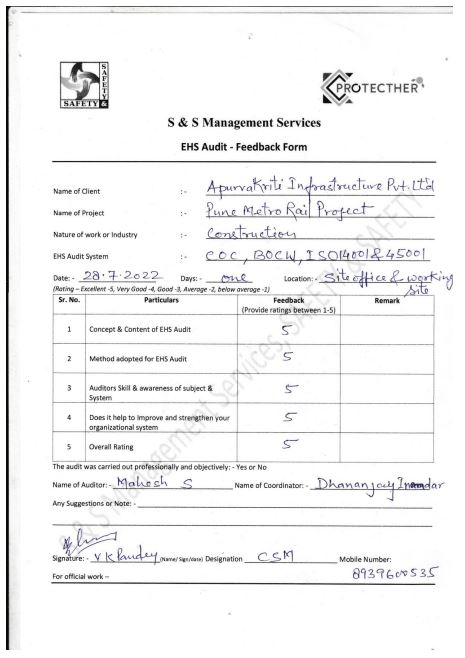 SAFETY
SAFETY &
PROTECTHER
S & S Management Services
EHS Audit - Feedback Form
Name of Client :- ApurvaKriti Infrastructure Pvt. Ltd
Name of Project :- Pune Metro Rail Project
Nature of work or Industry :- Construction
EHS Audit System :- COC, BOCW, ISO14001 & 45001
Date:- 28.7.2022 Days:- one Location:- Site office & working site
(Rating – Excellent -5, Very Good -4, Good -3, Average -2, below average -1)
Sr. No. Particulars Feedback Remark
(Provide ratings between 1-5)
1 Concept & Content of EHS Audit 5
2 Method adopted for EHS Audit 5
3 Auditors Skill & awareness of subject & System 5
4 Does it help to Improve and strengthen your organizational system 5
5 Overall Rating 5
The audit was carried out professionally and objectively: - Yes or No
Name of Auditor: - Mahesh S Name of Coordinator: - Dhananjay Inamdar
Any Suggestions or Note: -
Signature: - V K Pandey (Name/ Sign/date) Designation CSM Mobile Number:
8939600535
For official work –
S & S Management Services, SAFETY & SAFETY